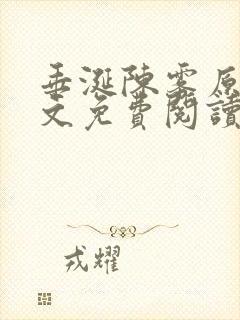 垂涎陳雾原
文免費閱讀
戎耀